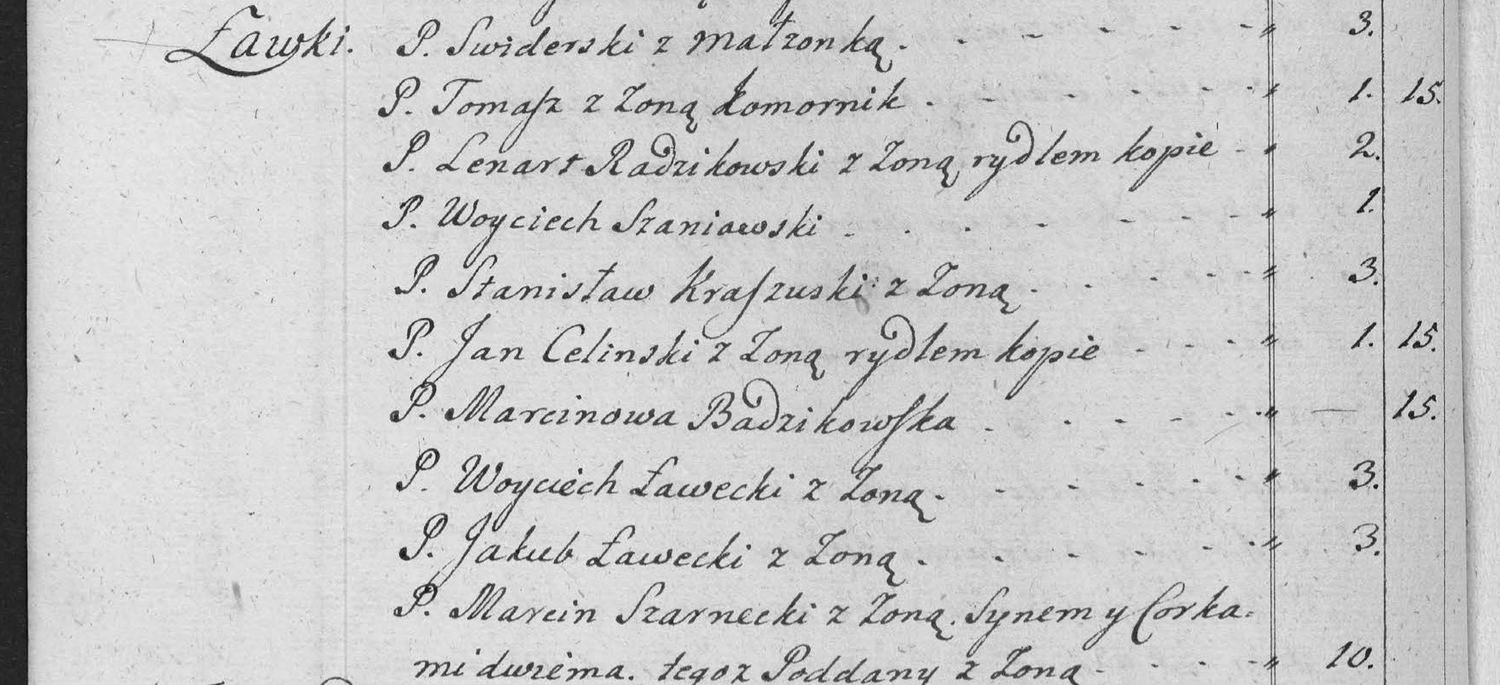 Ławski. P. Swiderski z małzonką. - - - - - " 3.
P. Tomaſz z Zoną komornik. - - - - - " 1. 15.
P. Lenart Radzikowski z Zoną rydlem kopie - " 2.
P. Woyciech Szaniawski - - - - - " 1.
P. Stanisław Kraſzuski z Zoną. - - - - " 3.
P. Jan Celinski z Zoną rydlem kopie - - - " 1. 15.
P. Marcinowa Badzikowſka. - - - - " — 15.
P. Woyciech Ławecki z Zoną. - - - - - " 3.
P. Jakub Ławecki z Zoną. - - - - - " 3.
P. Marcin Szarnecki z Zoną. Synem y Corka-
mi dwiema. tegoz Poddany z Zoną - - - " 10.